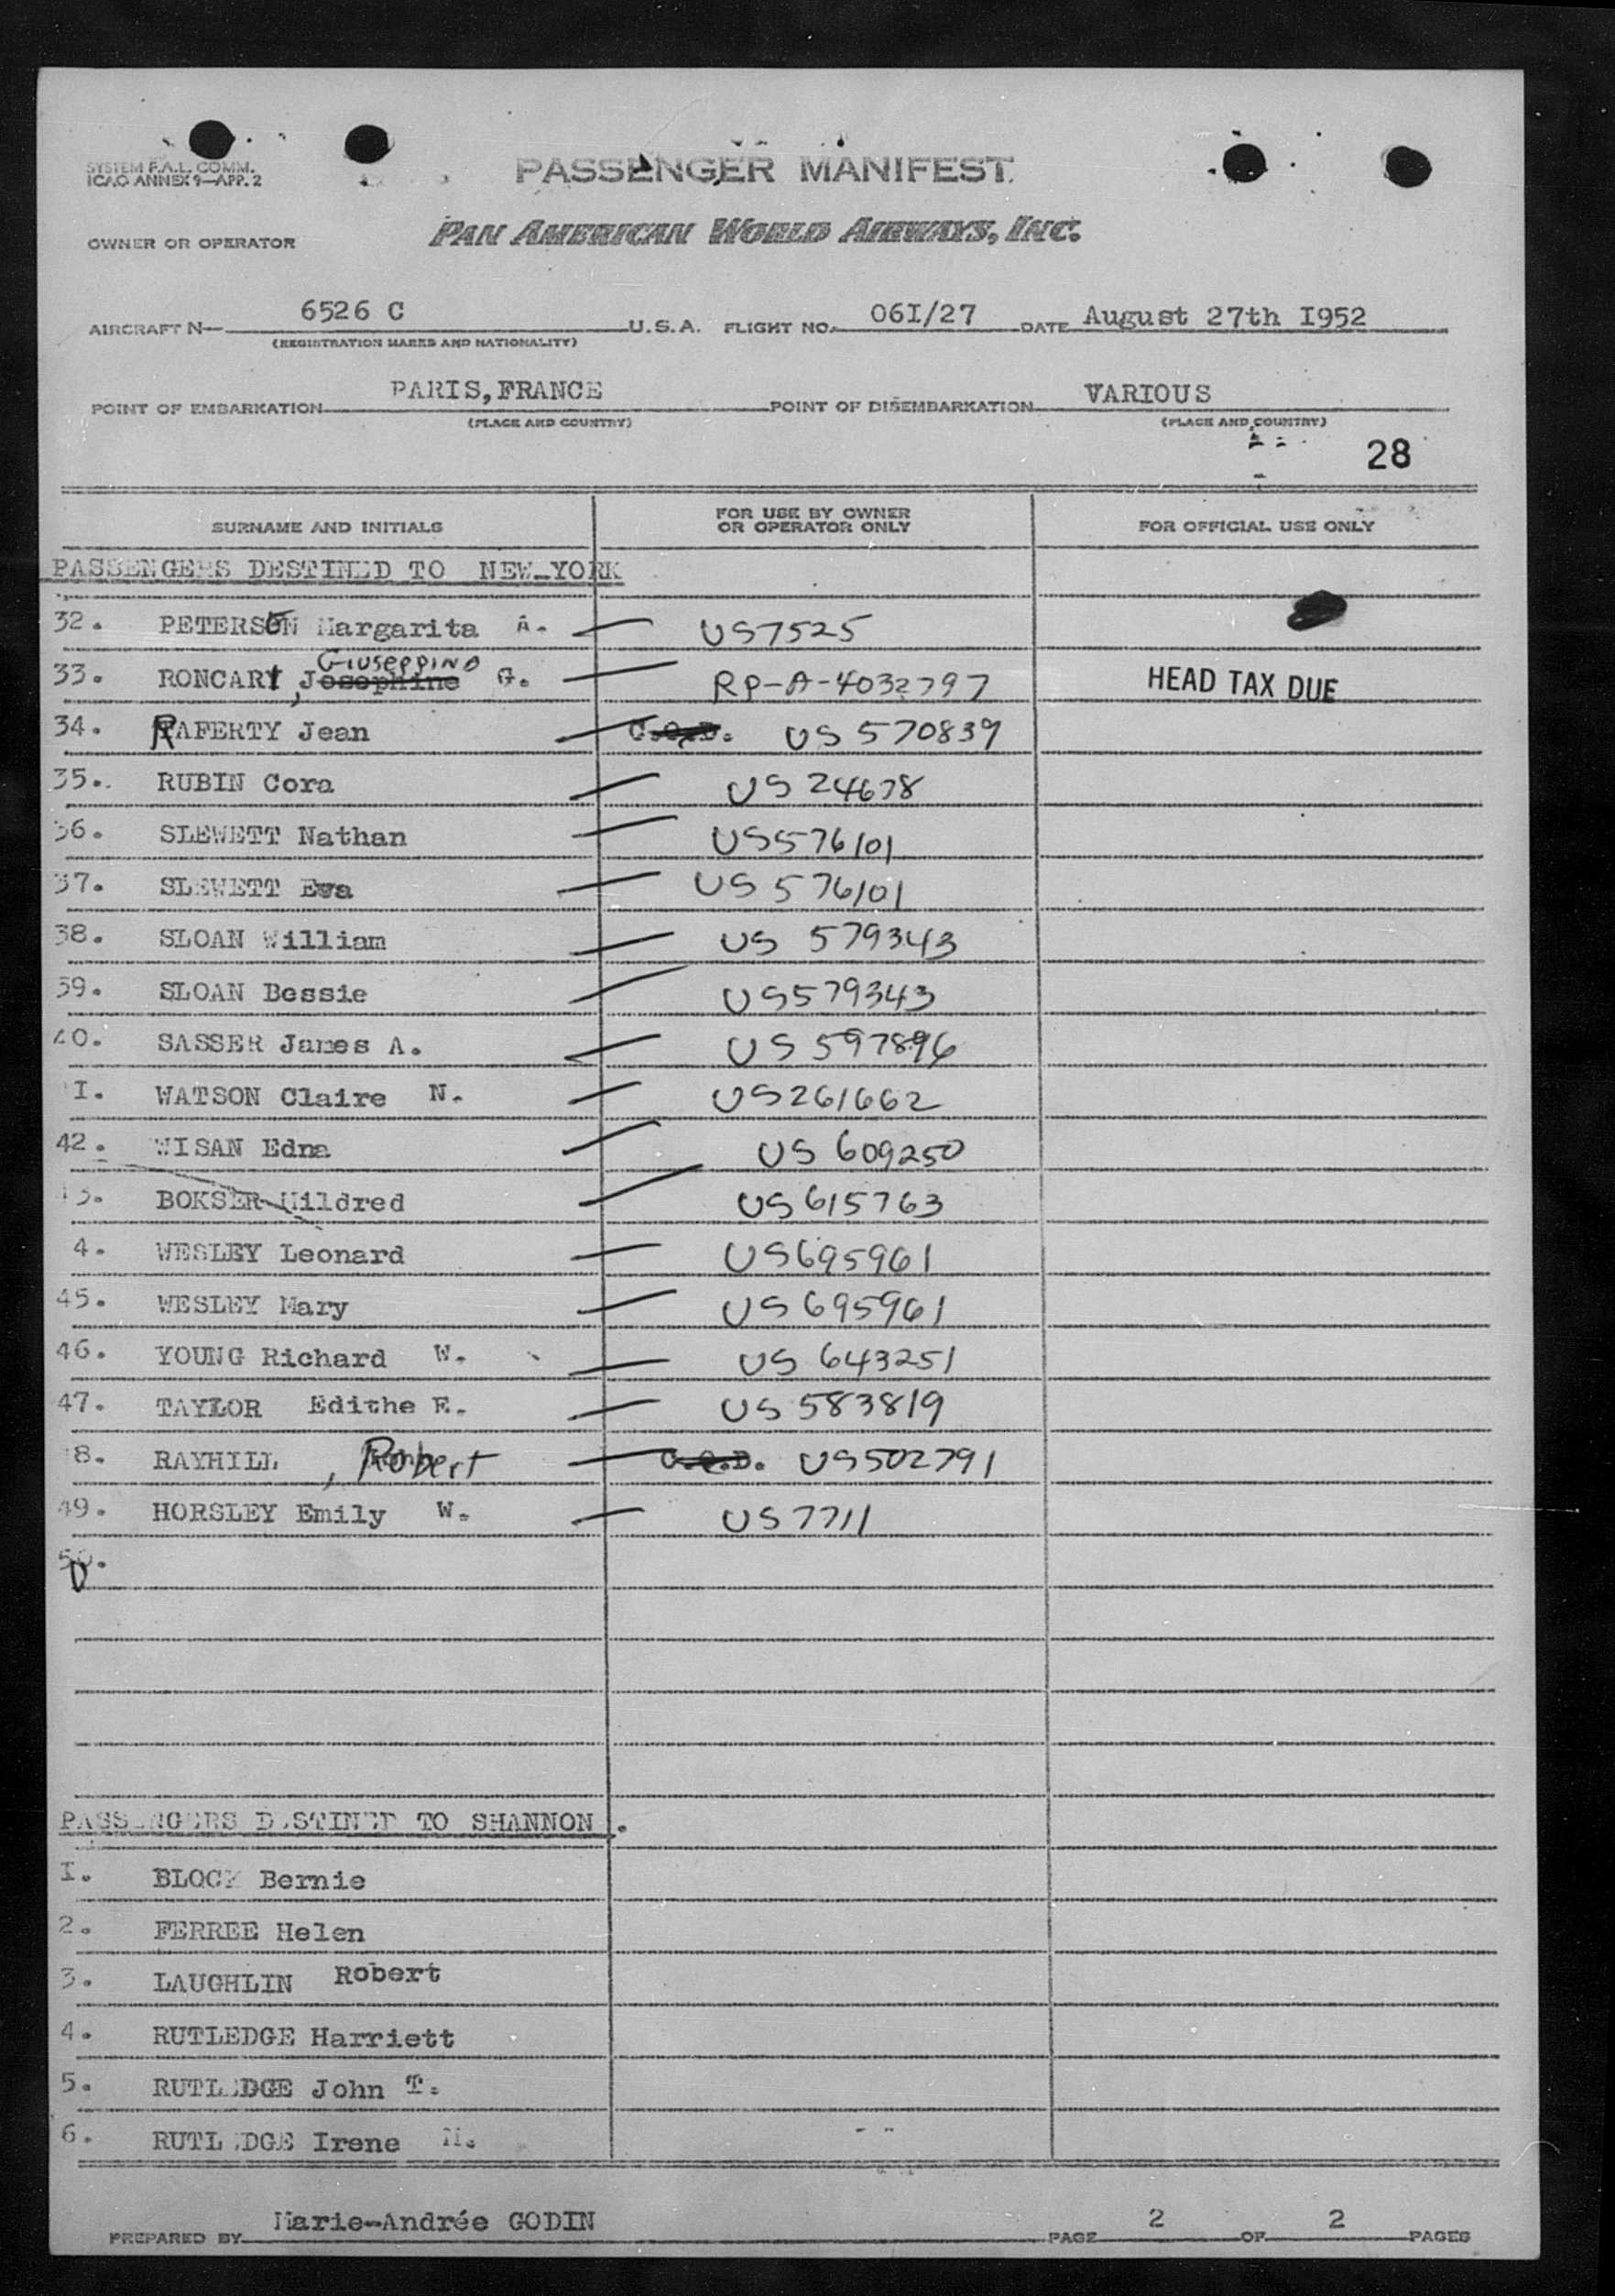 SYSTEM F.A.L. COMM.
ICAO ANNEX 9—APP. 2
PASSENGER MANIFEST
OWNER OR OPERATOR PAN AMERICAN WORLD AIRWAYS, INC.
AIRCRAFT N— 6526 C U.S.A. FLIGHT NO. 06I/27 DATE August 27th I952
(REGISTRATION MARKS AND NATIONALITY)
POINT OF EMBARKATION PARIS,FRANCE POINT OF DISEMBARKATION VARIOUS
(PLACE AND COUNTRY) (PLACE AND COUNTRY)
28
SURNAME AND INITIALS FOR USE BY OWNER OR OPERATOR ONLY FOR OFFICIAL USE ONLY
PASSENGERS DESTINED TO NEW-YORK
32. PETERSEN Margarita A. US7525
Giuseppino
33. RONCARI, Josephine G. RP-A-4032797 HEAD TAX DUE
34. RAFERTY Jean C.O.D. US 570839
35. RUBIN Cora US 24678
36. SLEWETT Nathan US576101
37. SLEWETT Eva US 576101
38. SLOAN William US 579343
39. SLOAN Bessie US579343
40. SASSER James A. US 597896
I. WATSON Claire N. US261662
42. WISAN Edna US 609250
13. BOKSER Mildred US615763
4. WESLEY Leonard US695961
45. WESLEY Mary US 695961
46. YOUNG Richard W. US 643251
47. TAYLOR Edithe E. US 583819
8. RAYHILL, Robert C.O.D. US502791
49. HORSLEY Emily W. US7711
50.
PASSENGERS DESTINED TO SHANNON.
I. BLOCK Bernie
2. FERREE Helen
3. LAUGHLIN Robert
4. RUTLEDGE Harriett
5. RUTLEDGE John T.
6. RUTLEDGE Irene M.
PREPARED BY Marie-Andrée GODIN PAGE 2 OF 2 PAGES